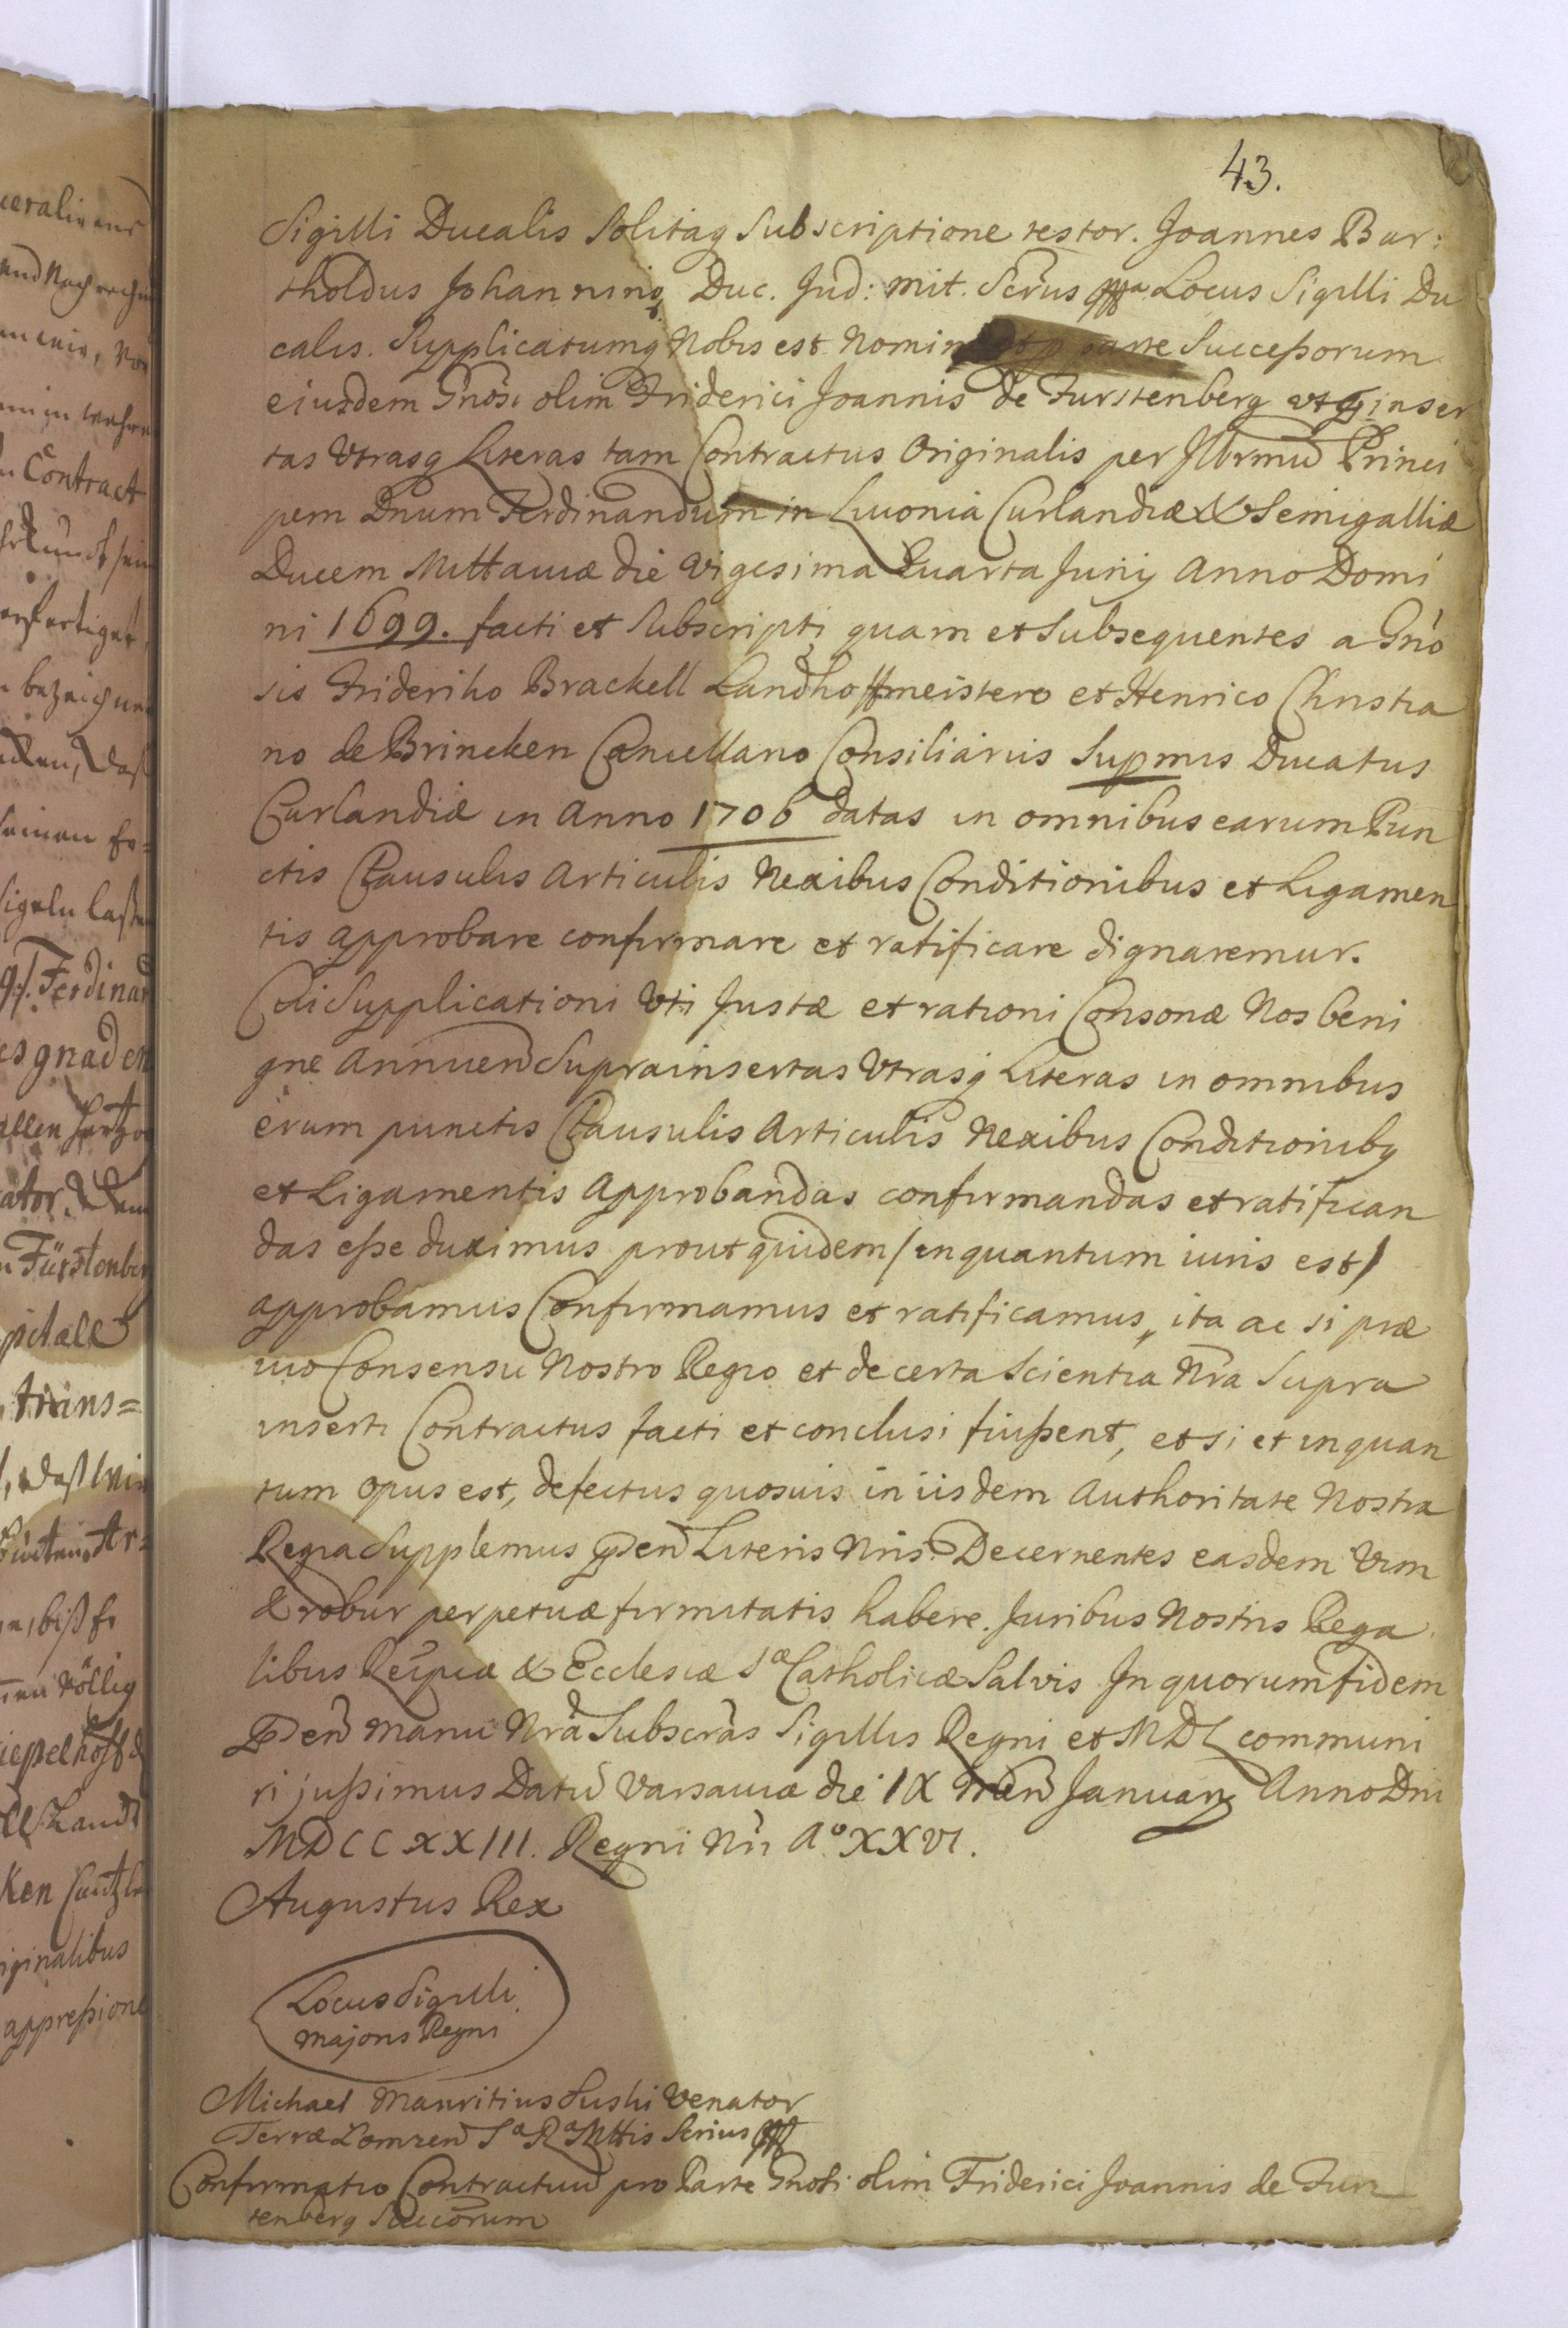 43.
Sigilli Ducalis Solitaq Subscriptione testor. Joannes Bar:
tholdus Johanninq Duc. Jud: mit. Scrus mppa Locus Sigilli Du
calis. Supplicatumq Nobis est Nomine et parte Succeßorum
eiusdem Gnosi olim Friderici Joannis de Furstenberg inser
tas Utrasq Literas tam Contractus Originalis per Illrmū Princi
pem Dnum Ferdinandum in Livonia Curlandiæ & Semigalliæ
Ducem Mittaviæ die Vigesima Quarta Junij Anno Domi
ni 1699. facti et Subscripti quam et Subsequentes a Gno
sis Frideriho Brackell Landhoffmeistero et Henrico Christia
no de Brincken Cancellario Consiliariis Supmis Ducatus
Curlandiæ in Anno 1706 datas in omnibus earum Pun
ctis Clausulis Articulis Nexibus Conditionibus et Ligamen
tis approbare confirmare et ratificare dignaremur.
Cui Supplicationi Uti Justæ et rationi Consonæ Nos beni
gne Annuen Suprainsertas Utrasq Literas in omnibus
erum punctis Clausulis Articulis Nexibus Conditionibq
et Ligamentis Approbandas confirmandas et ratifican
das eße duximus prout quidem /in quantum iuris est/
approbamus Confirmamus et ratificamus, ita ac si præ
vio Consensu Nostro Regio et de certa Scientia Nra Supra
inserti Contractus facti et conclusi fuißent, et si et in quan
tum opus est, defectus quosvis in iisdem Authoritate Nostra
Regia Supplemus pnden Literis Nris. Decernentes easdem Vim
& robur perpetuæ firmitatis habere. Juribus Nostris Rega
libus Reipcæ & Ecclesiæ Sæ Catholicæ Salvis In quorum fidem
pnden manu Nra Subscras Sigillis Regni et MDL communi
ri jußimus Datū Varsaviæ die IX Men Januarij Anno Dni
MDCCXXIII. Regni Nri Ao XXVI.
Augustus Rex
Locus Sigilli
Majoris Regni
Michael Mauritius Suski Venator
Terræ Lomzen Sa Ra Mttis Scrius mpp
Confirmatio Contractuū pro Parte Gnosi olim Friderici Joannis de Furs
tenberg Succorum
Contract
Ferdinan
es gnaden
ator.
Fürstenber
trans=
völlig
Landt
iginalibus
appreßione